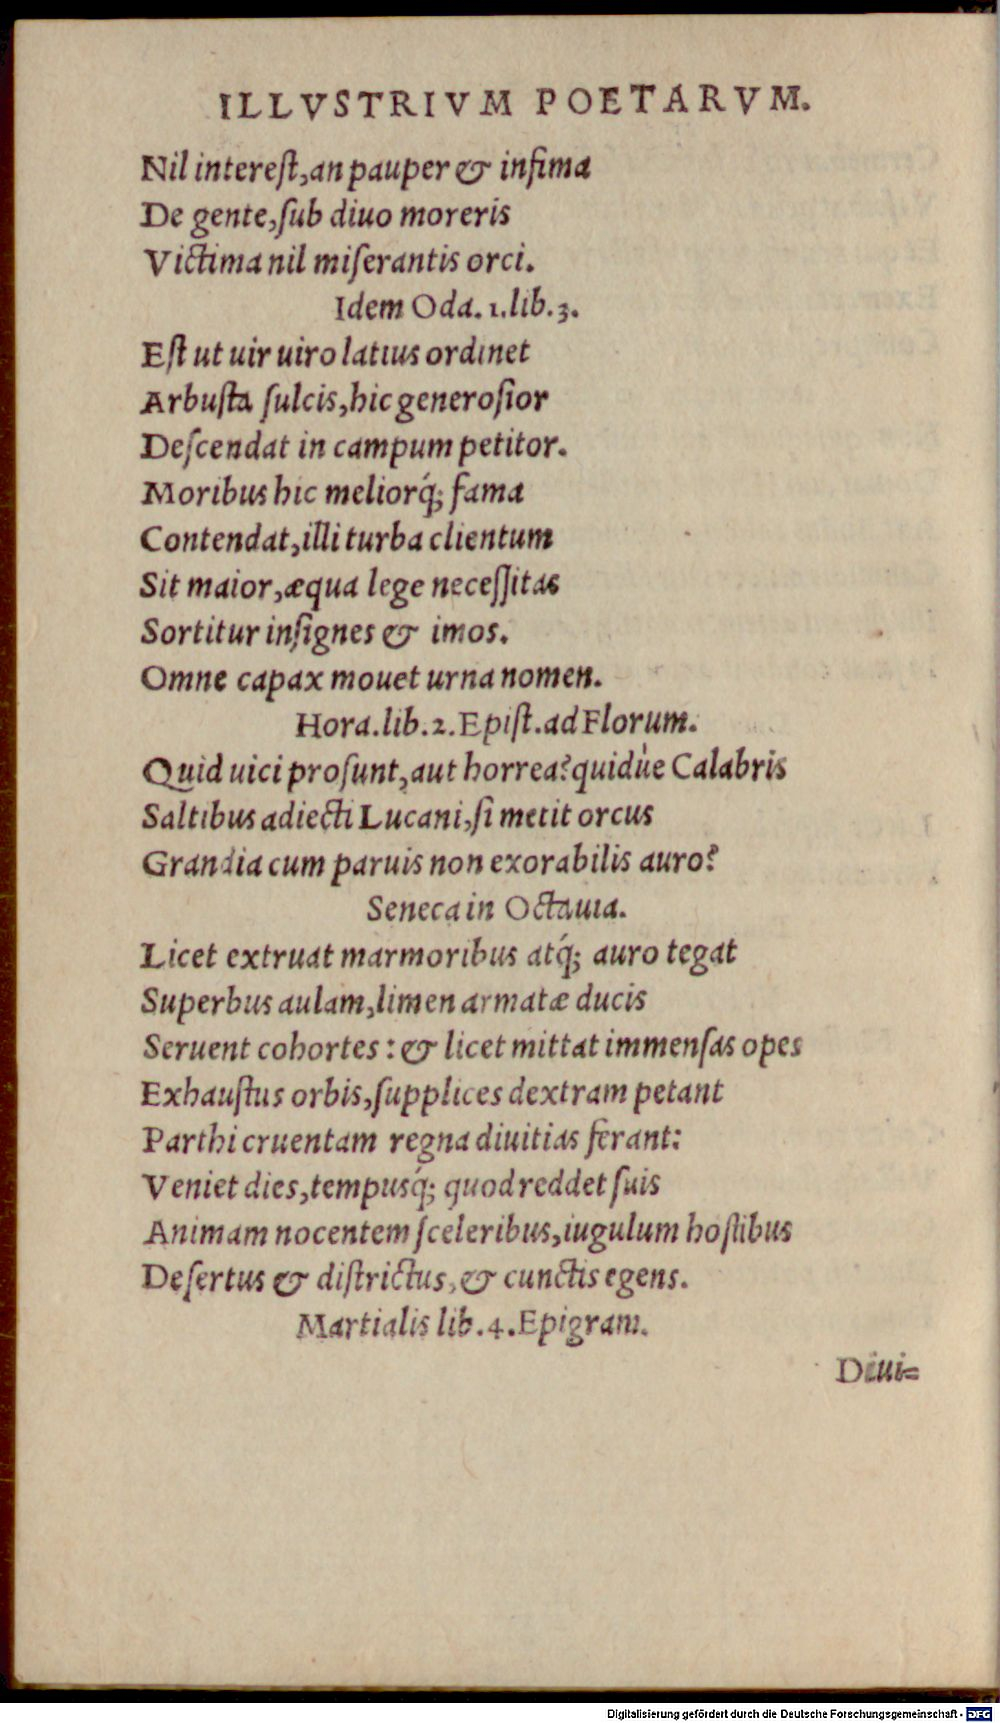 ILLVSTRIVM POETARVM.
Nil intereſt,an pauper & infima
De gente,ſub diuo moreris
Victima nil miſerantis orci.
Idem Oda. 1.lib.3.
Eſt ut uir uiro latius ordinet
Arbuſta ſulcis,hic generoſior
Deſcendat in campum petitor.
Moribus hic meliorq́; fama
Contendat,illi turba clientum
Sit maior,æqua lege neceſſitas
Sortitur inſignes & imos.
Omne capax mouet urna nomen.
Hora.lib.2.Epiſt.ad Florum.
Quid uici proſunt,aut horrea?quidùe Calabris
Saltibus adiecti Lucani,ſi metit orcus
Grandia cum paruis non exorabilis auro?
Seneca in Octauia.
Licet extruat marmoribus atq́; auro tegat
Superbus aulam,limen armatæ ducis
Seruent cohortes: & licet mittat immenſas opes
Exhauſtus orbis,ſupplices dextram petant
Parthi cruentam regna diuitias ferant:
Veniet dies,tempusq́; quod reddet ſuis
Animam nocentem ſceleribus,iugulum hoſtibus
Deſertus & diſtrictus,& cunctis egens.
Martialis lib.4.Epigram.
Diui=
Digitalisierung gefördert durch die Deutsche Forschungsgemeinschaft - DFG